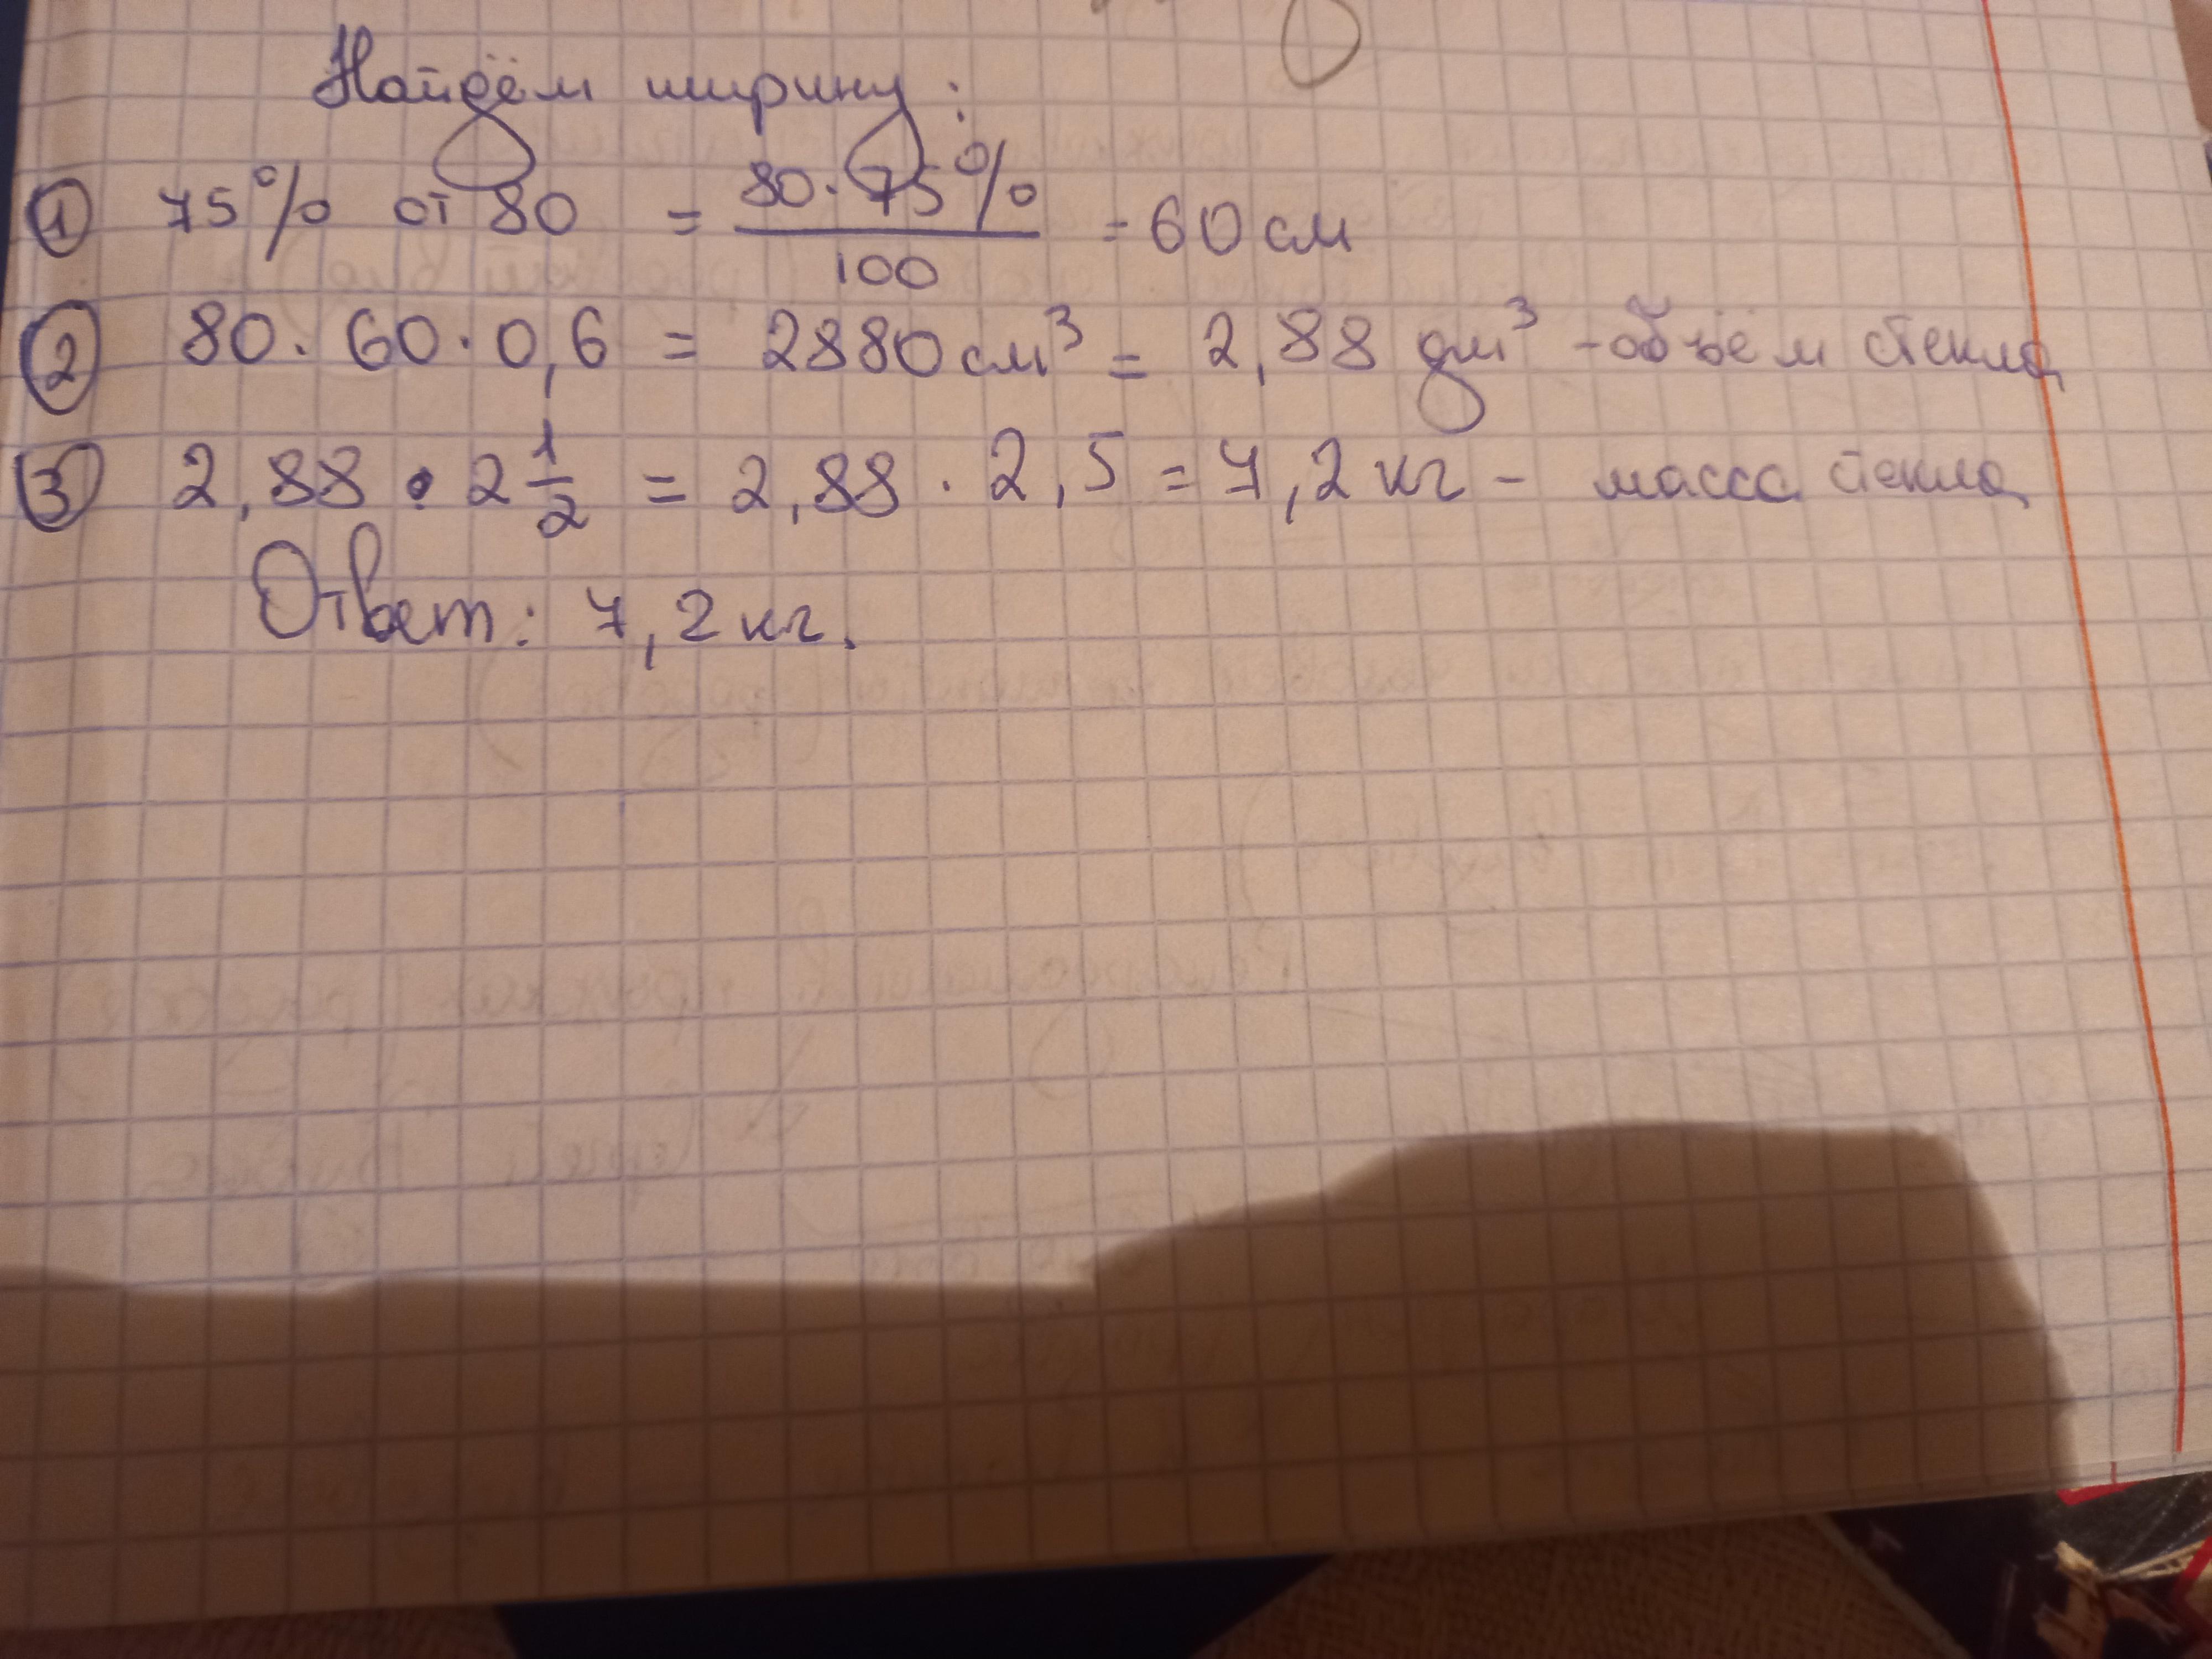 Найдём ширину:
① 75% от 80 = 80·75% / 100 = 60 см
② 80·60·0,6 = 2880 см³ = 2,88 дм³ - объём стекла
③ 2,88 · 2 1/2 = 2,88 · 2,5 = 7,2 кг - масса стекла
Ответ: 7,2 кг.